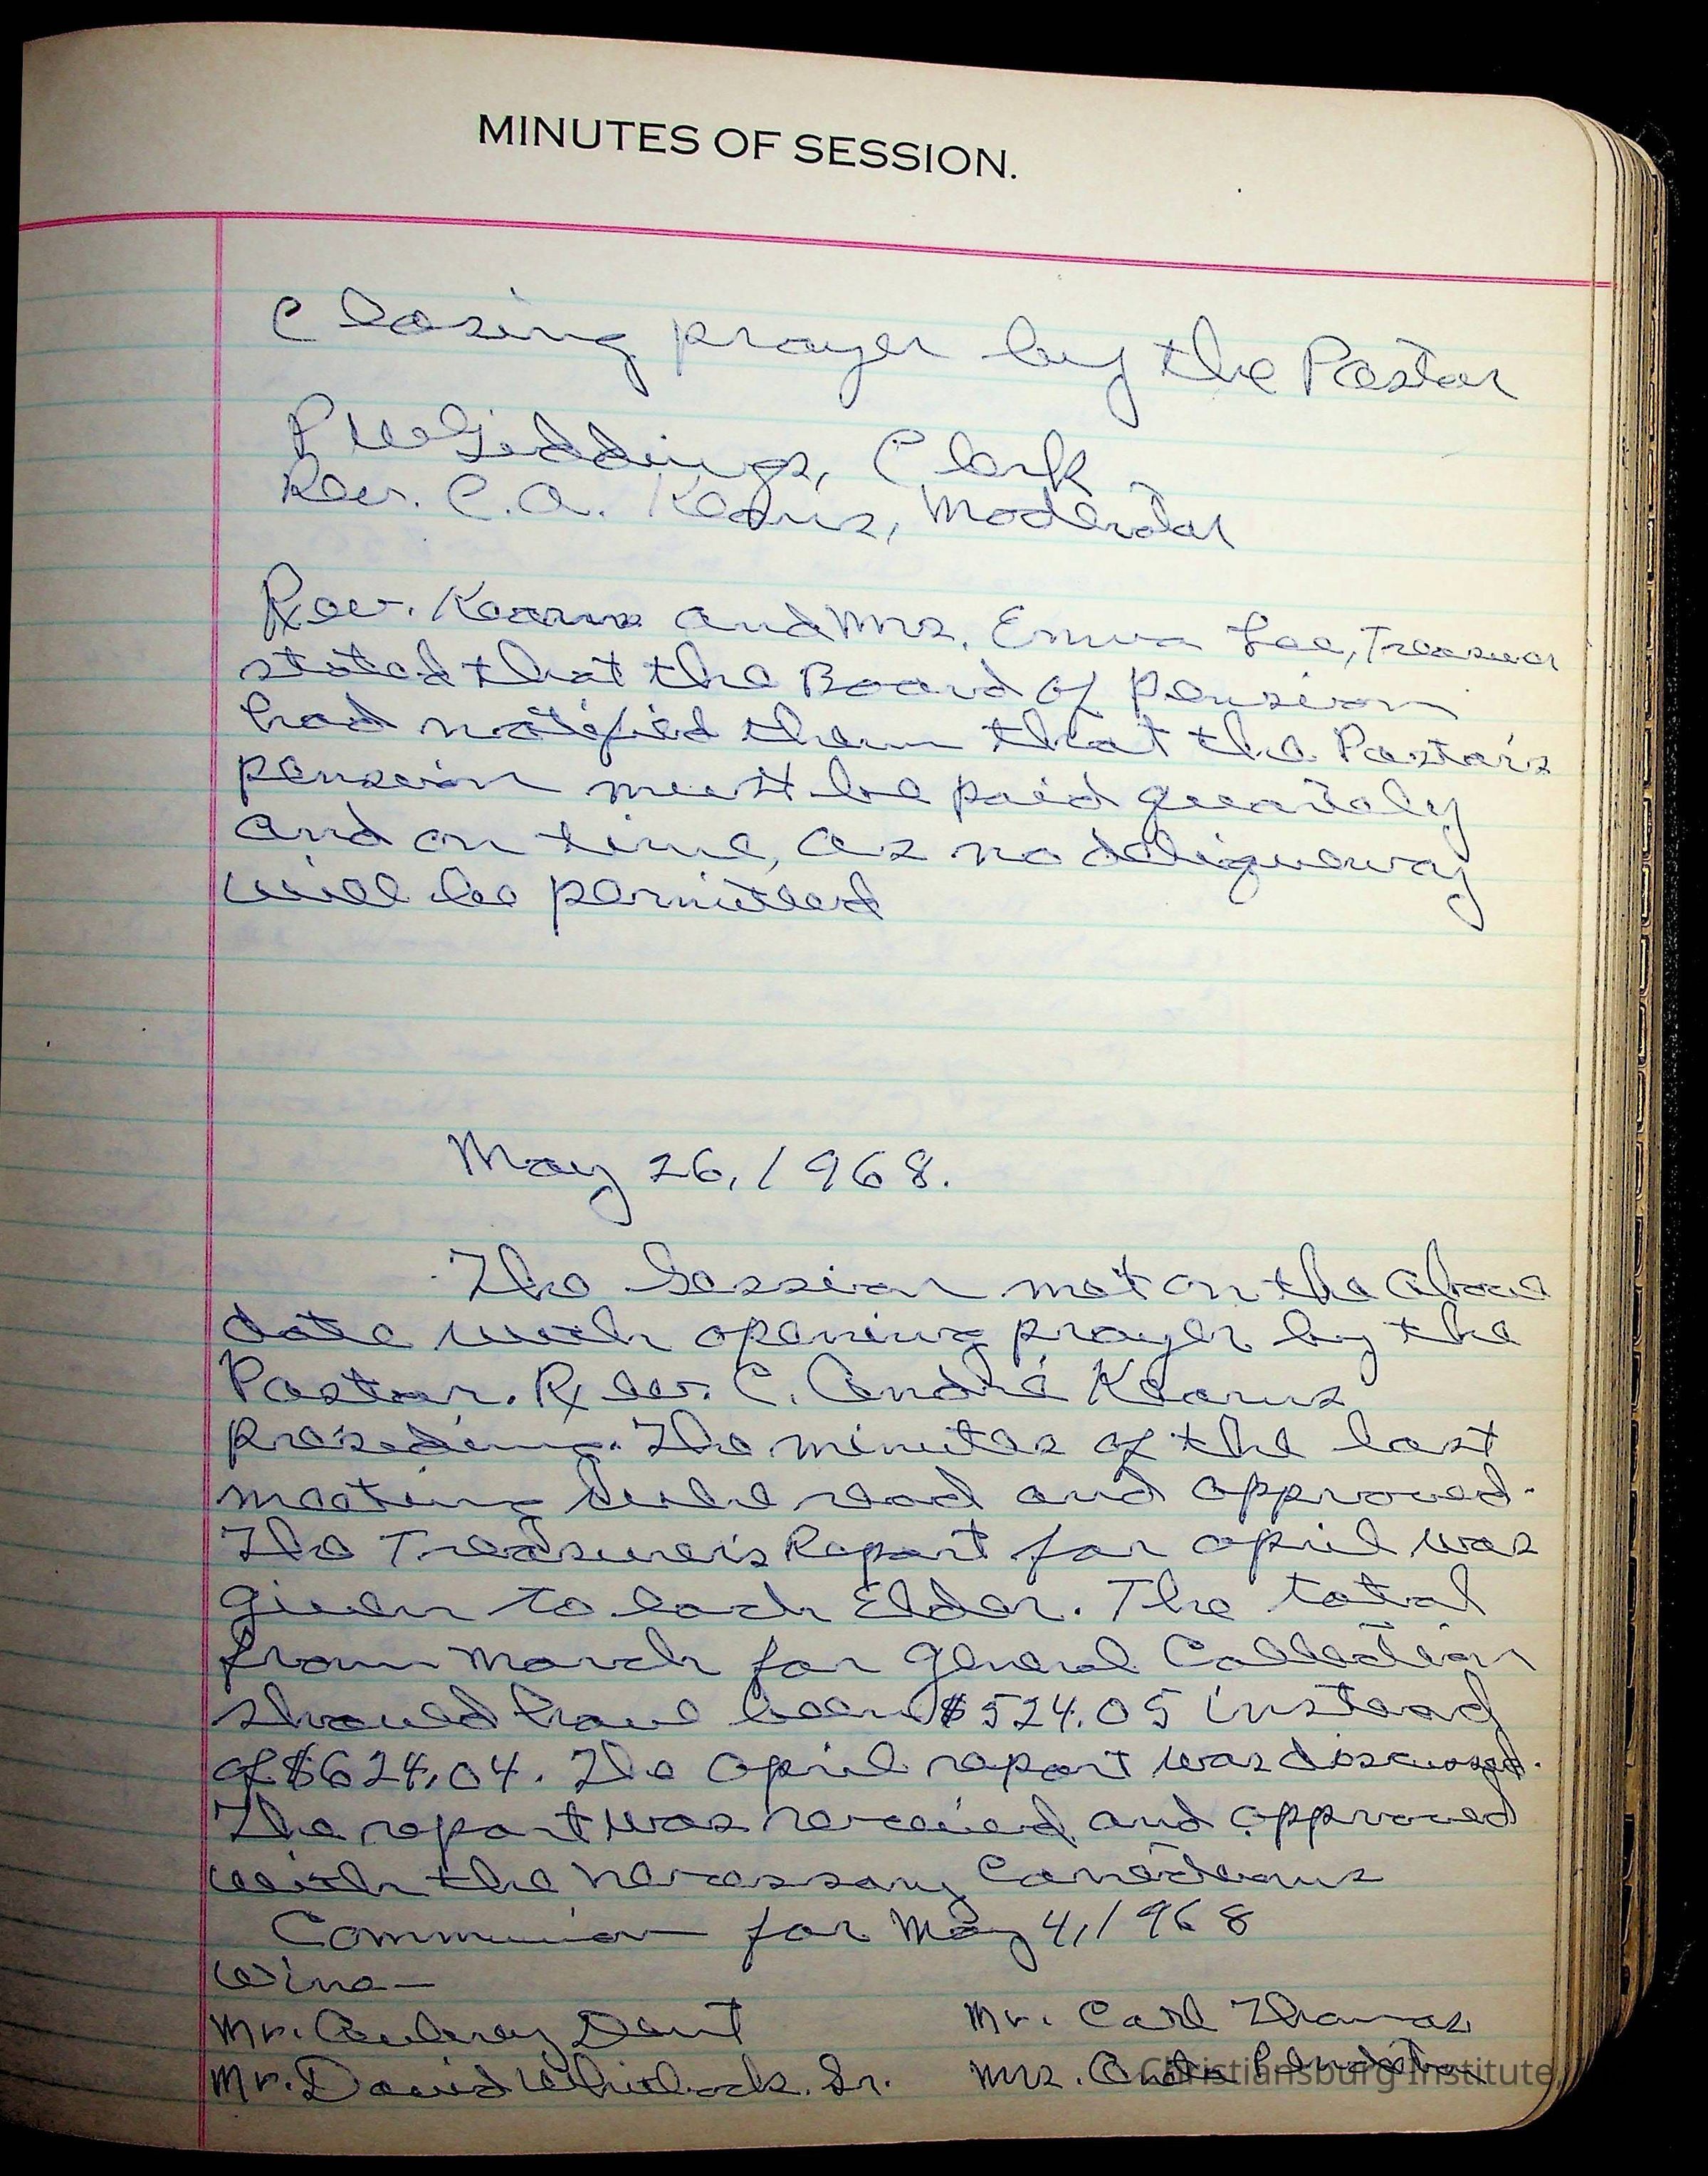 MINUTES OF SESSION.
Closing prayer by the Pastor
P W Giddings, Clerk
Rev. C.A. Kearns, Moderator
Rev. Kearns and Mrs. Emma Lee, Treasurer
stated that the Board of Pension
had notified them that the Pastor's
pension must be paid quartely
and on time, as no deliquency
will be permitted
May 26, 1968.
The Session met on the above
date with opening prayer by the
Pastor. Rev. C. André Kearns
presiding. The minutes of the last
meeting were read and approved.
The Treasurer's Report for April was
given to each Elder. The total
from March for General Collection
should have been $524.05 instead
of $624.04. The April report was discussed.
The report was received and approved
with the necessary corrections
Communion for May 4, 1968
Wine—
Mr. Aubrey Dent Mr. Carl Thomas
Mr. David Whitlock, Sr. Mrs.
Christiansburg Institute,